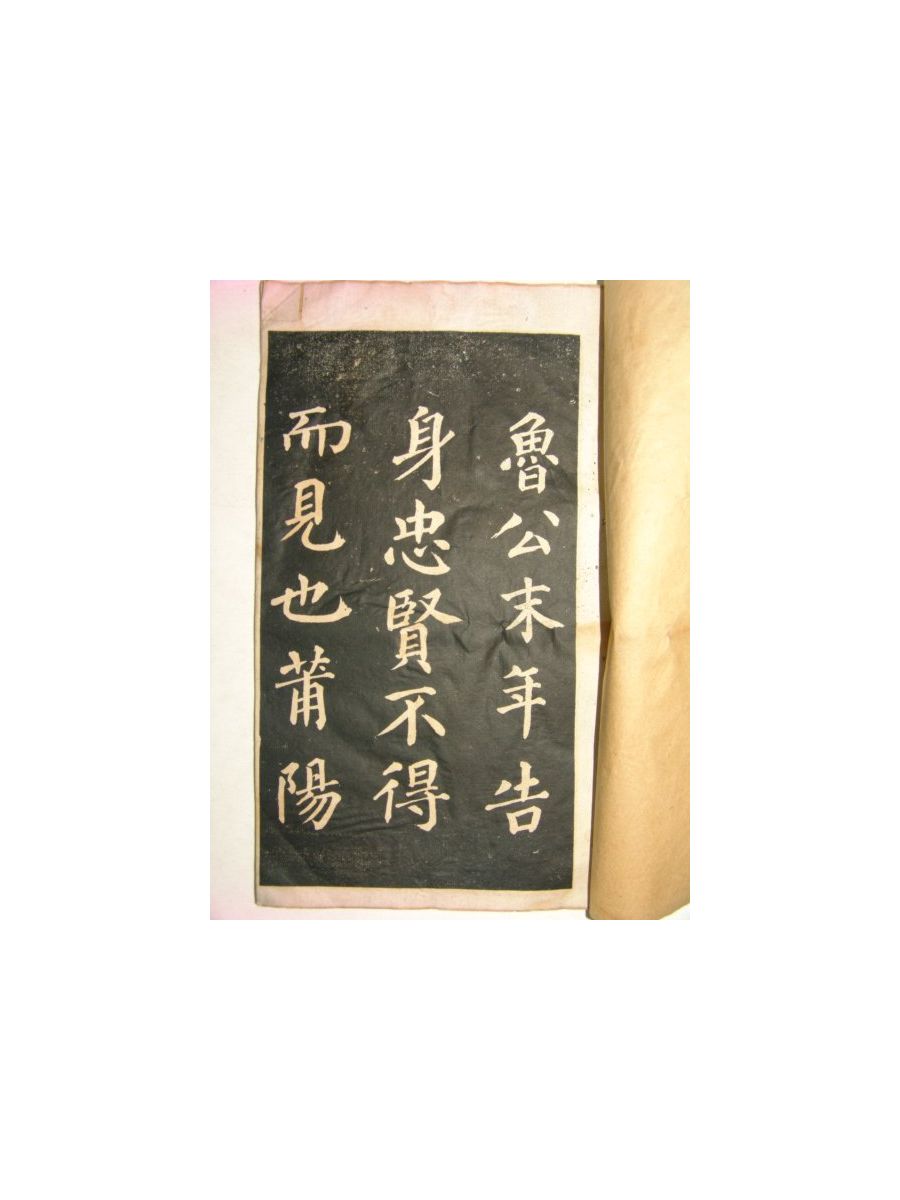 魯公末年告
身忠賢不得
而見也莆陽